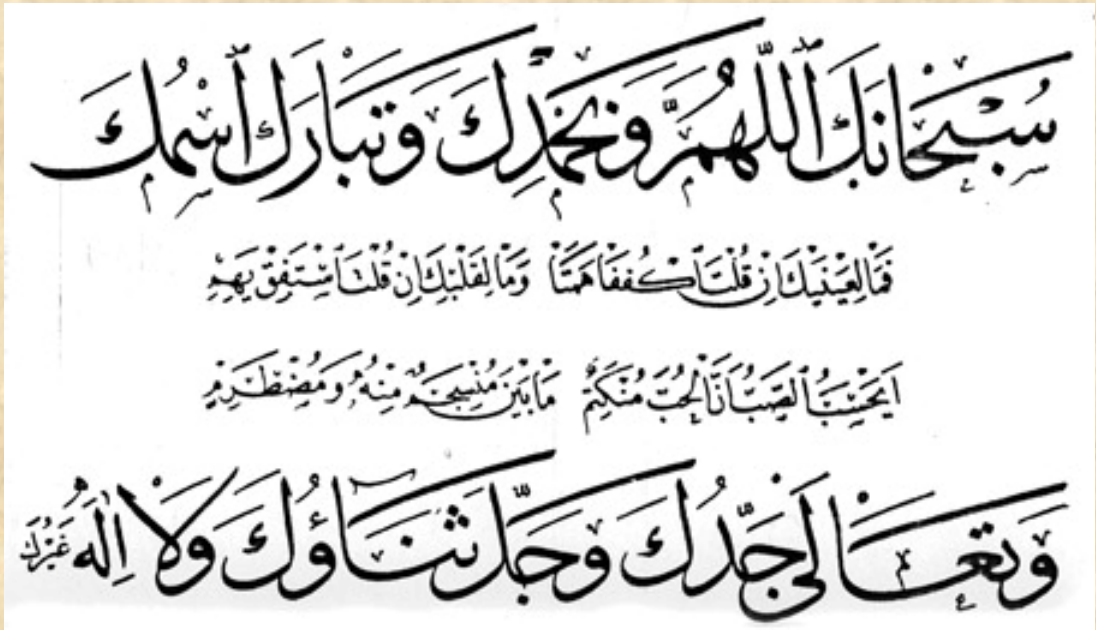 سُبْحَانَكَ اللّٰهُمَّ وَبِحَمْدِكَ وَتَبَارَكَ اسْمُكَ
فَمَا لِعَيْنَيْكَ اِنْ قُلْتَ اكْفُفَا هَمَتَا وَمَا لِقَلْبِكَ اِنْ قُلْتَ اسْتَفِقْ يَهِمِ
اَيَحْسَبُ الصَّبُّ اَنَّ الْحُبَّ مُنْكَتِمٌ مَا بَيْنَ مُنْسَجِمٍ مِنْهُ وَمُضْطَرِمِ
وَتَعَالٰى جَدُّكَ وَجَلَّ ثَنَاؤُكَ وَلَا اِلٰهَ غَيْرُكَ